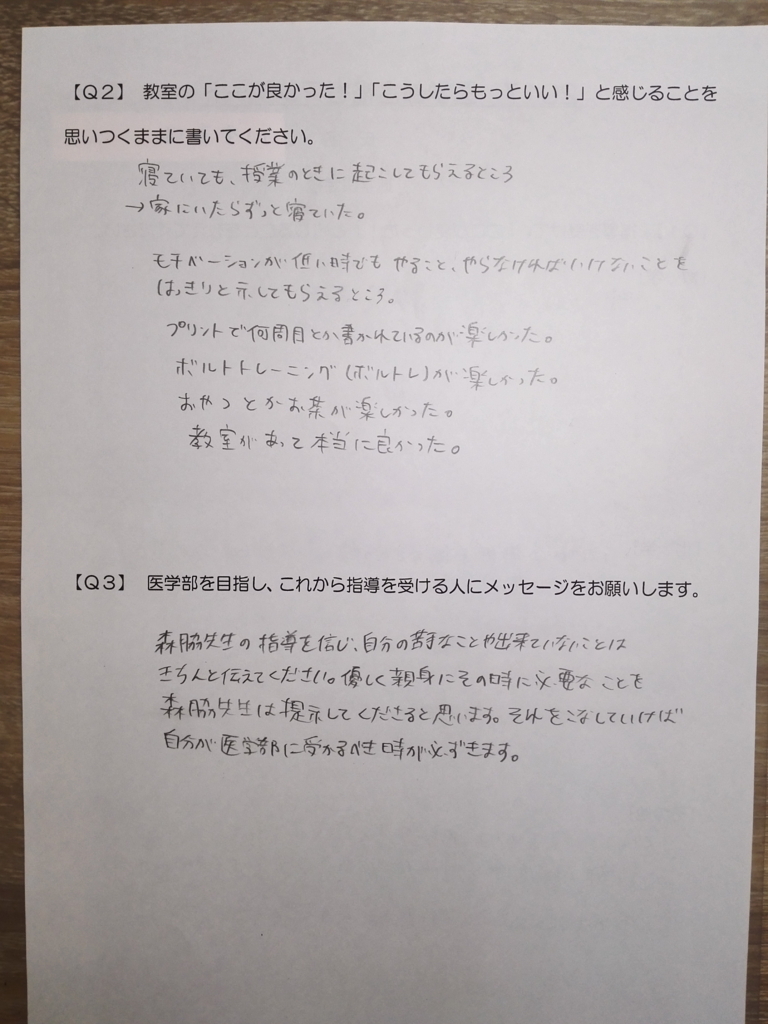 【Q2】 教室の「ここが良かった！」「こうしたらもっといい！」と感じることを
思いつくままに書いてください。
寝ていても、授業のときに起こしてもらえるところ
→家にいたらずっと寝ていた。
モチベーションが低い時でも やること、やらなければいけないことを
はっきりと示してもらえるところ。
プリントで何周目とか書かれているのが楽しかった。
ボルトトレーニング(ボルトレ)が楽しかった。
おやつとかお茶が楽しかった。
教室があって本当に良かった。
【Q3】 医学部を目指し、これから指導を受ける人にメッセージをお願いします。
森脇先生の指導を信じ、自分の苦手なことや出来ていないことは
きちんと伝えてください。優しく親身にその時に必要なことを
森脇先生は提示してくださると思います。それをこなしていけば
自分が医学部に受かるべき時が必ずきます。